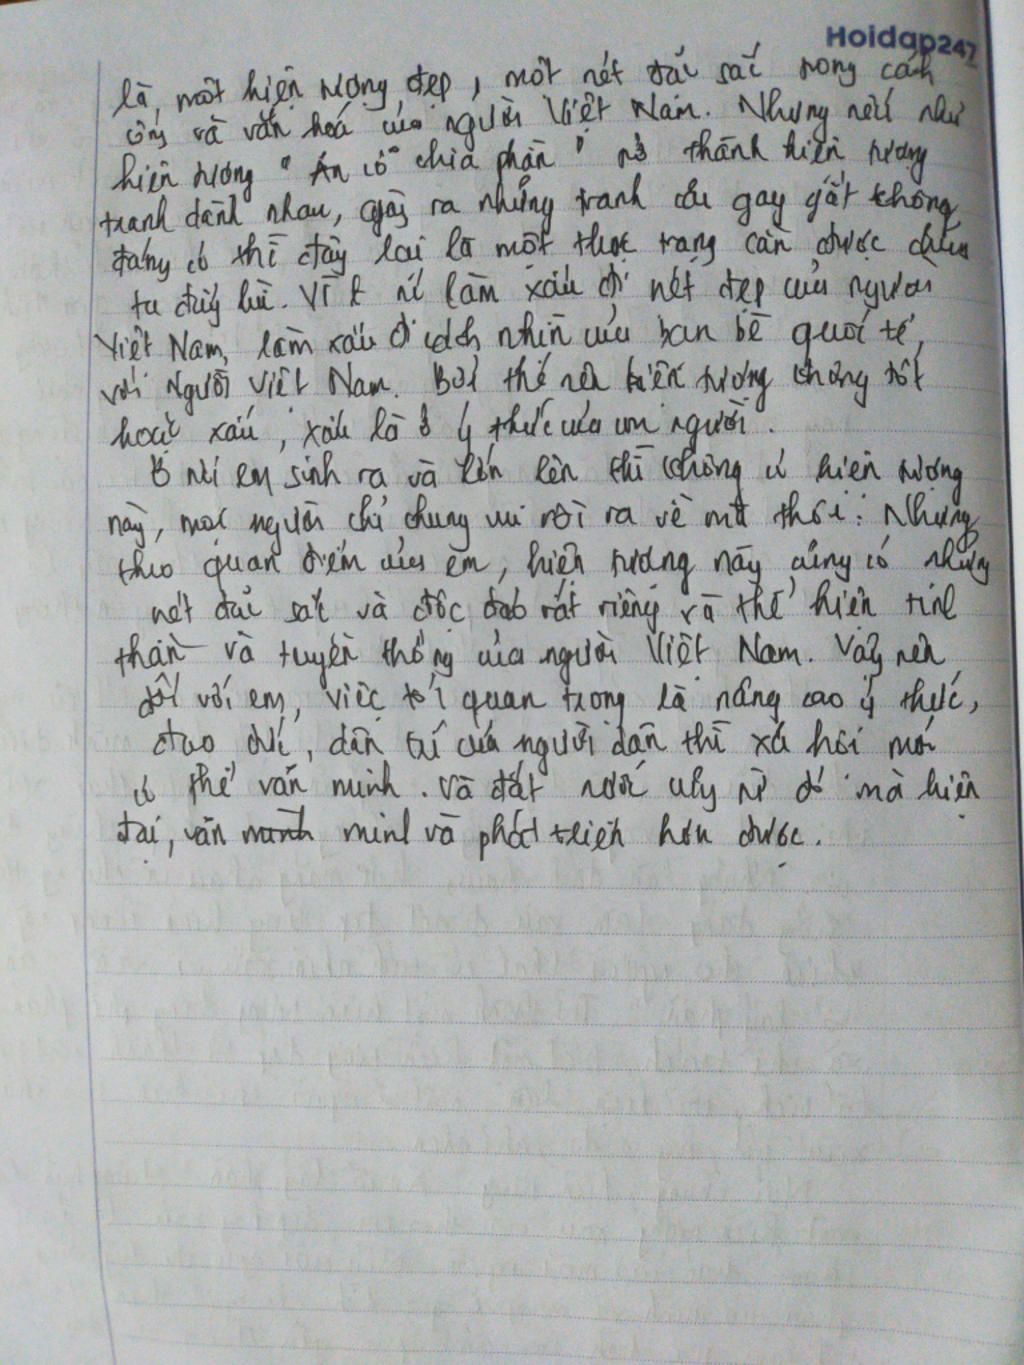 Hoidap247
là, một hiện tượng đẹp, một nét đặc sắc trong cách
ứng và văn hoá của người Việt Nam. Nhưng nếu như
hiện tượng "Ăn cỗ chia phần" trở thành hiện tượng
tranh dành nhau, gây ra những tranh cãi gay gắt không
đáng có thì đây lại là một thực trạng cần được chúng
ta đẩy lùi. Vì nó làm xấu đi nét đẹp của người
Việt Nam, làm xấu đi cách nhìn của bạn bè quốc tế,
với người Việt Nam. Bởi thế nên hiện tượng không tốt
hoặc xấu, xấu là ở ý thức của con người.
Ở nơi em sinh ra và lớn lên thì không có hiện tượng
này, mọi người chỉ chung vui rồi ra về mà thôi. Nhưng
theo quan điểm của em, hiện tượng này cũng có những
nét đặc sắc và độc đáo rất riêng và thể hiện tinh
thần và truyền thống của người Việt Nam. Vậy nên
đối với em, việc tối quan trọng là nâng cao ý thức,
đạo đức, dân trí của người dân thì xã hội mới
có thể văn minh. Và đất nước cũng từ đó mà hiện
đại, văn minh và phát triển hơn được.